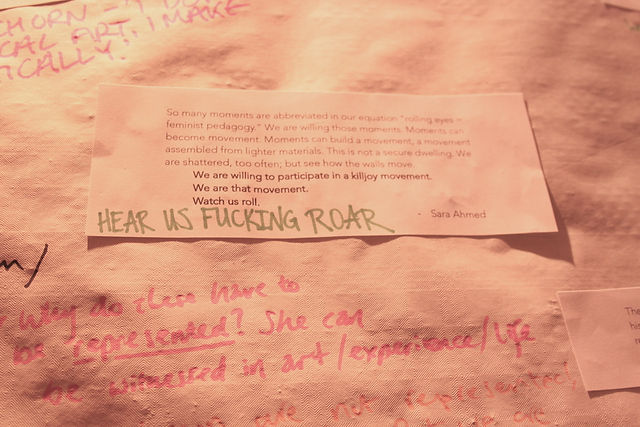 HORN - I DO
CAL ART, I MAKE
ICALLY.
So many moments are abbreviated in our equation "rolling eyes =
feminist pedagogy." We are willing those moments. Moments can
become movement. Moments can build a movement, a movement
assembled from lighter materials. This is not a secure dwelling. We
are shattered, too often; but see how the walls move.
We are willing to participate in a killjoy movement.
We are that movement.
Watch us roll.
- Sara Ahmed
HEAR US FUCKING ROAR
m/
Why do then have to
be represented? She can
be witnessed in art/experience/life
The
are not represented,